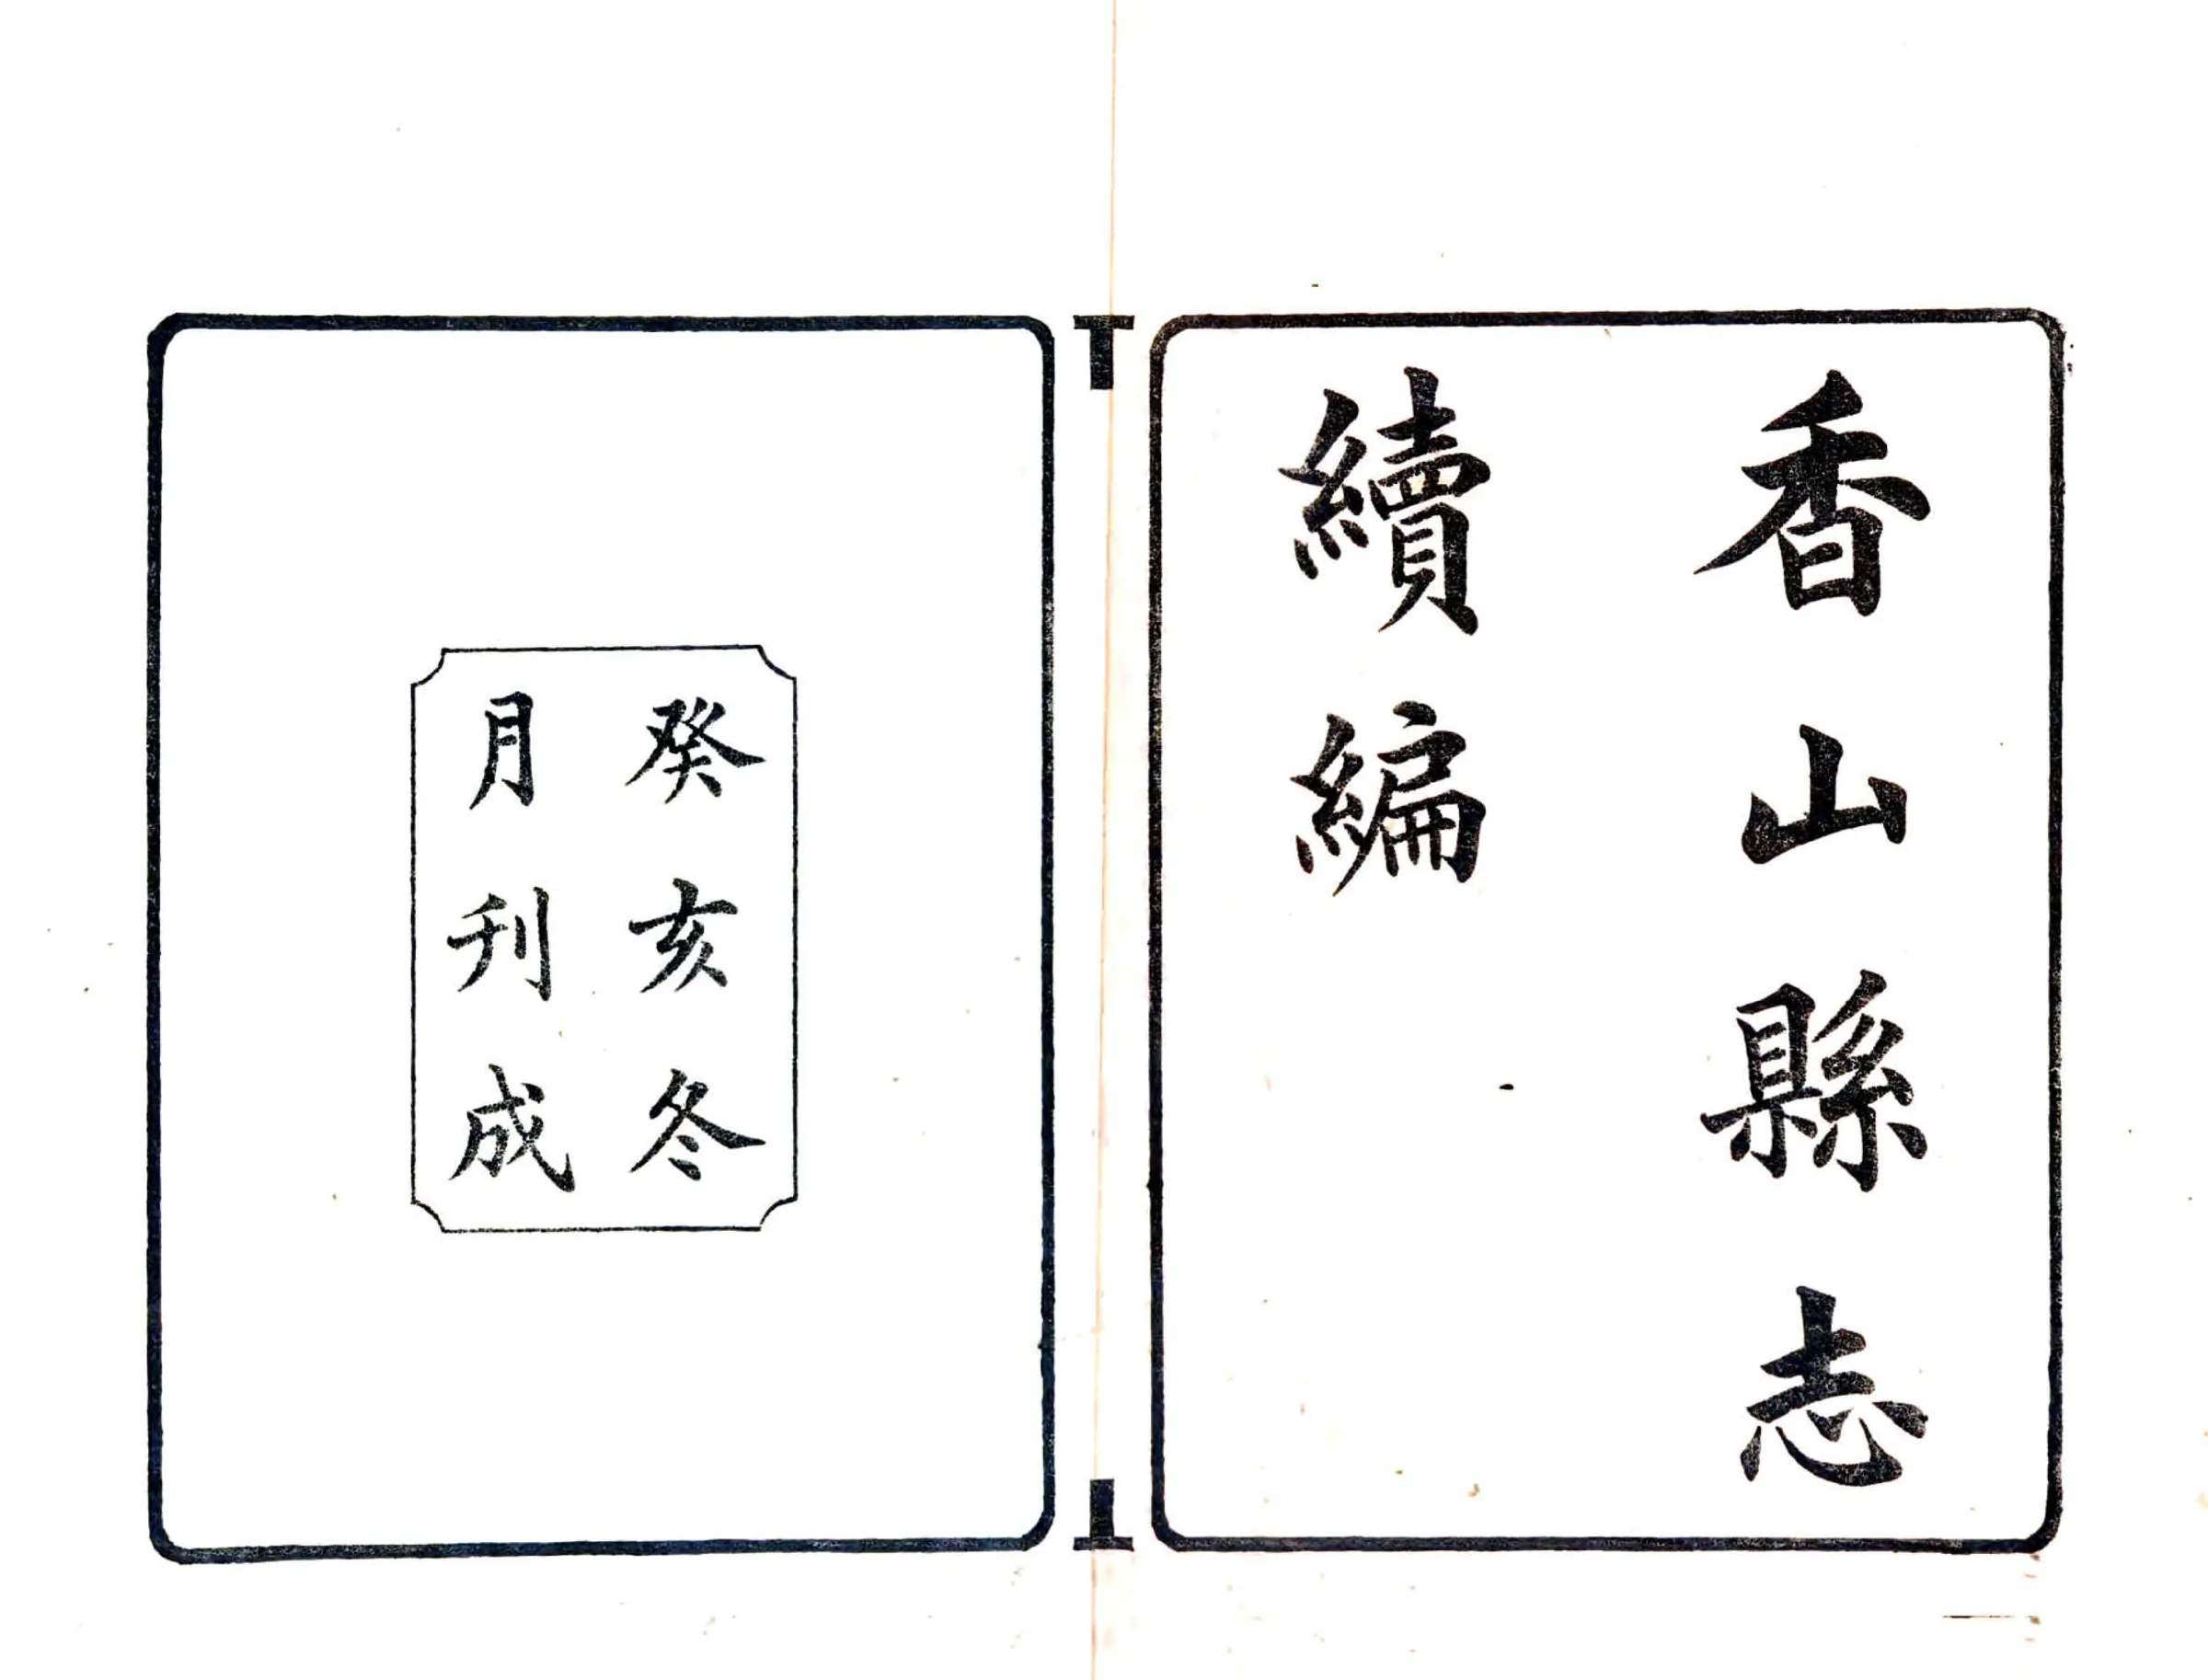 香山縣志
續編
癸亥冬
月刊成